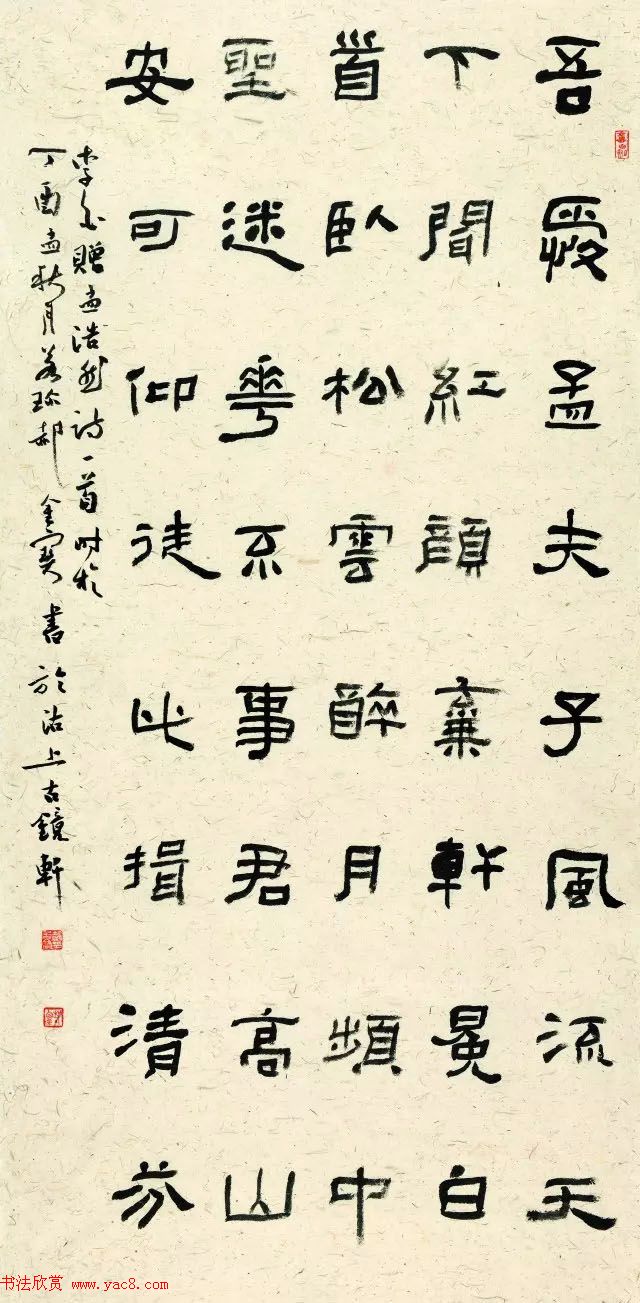 吾愛孟夫子風流天
下聞紅顔棄軒冕白
首臥松雲醉月頻中
聖迷華不事君高山
安可仰徒此揖清芬
李白贈孟浩然詩一首時於
丁酉孟秋月郝金寶書於沽上古鏡軒
书法欣赏 www.yac8.com